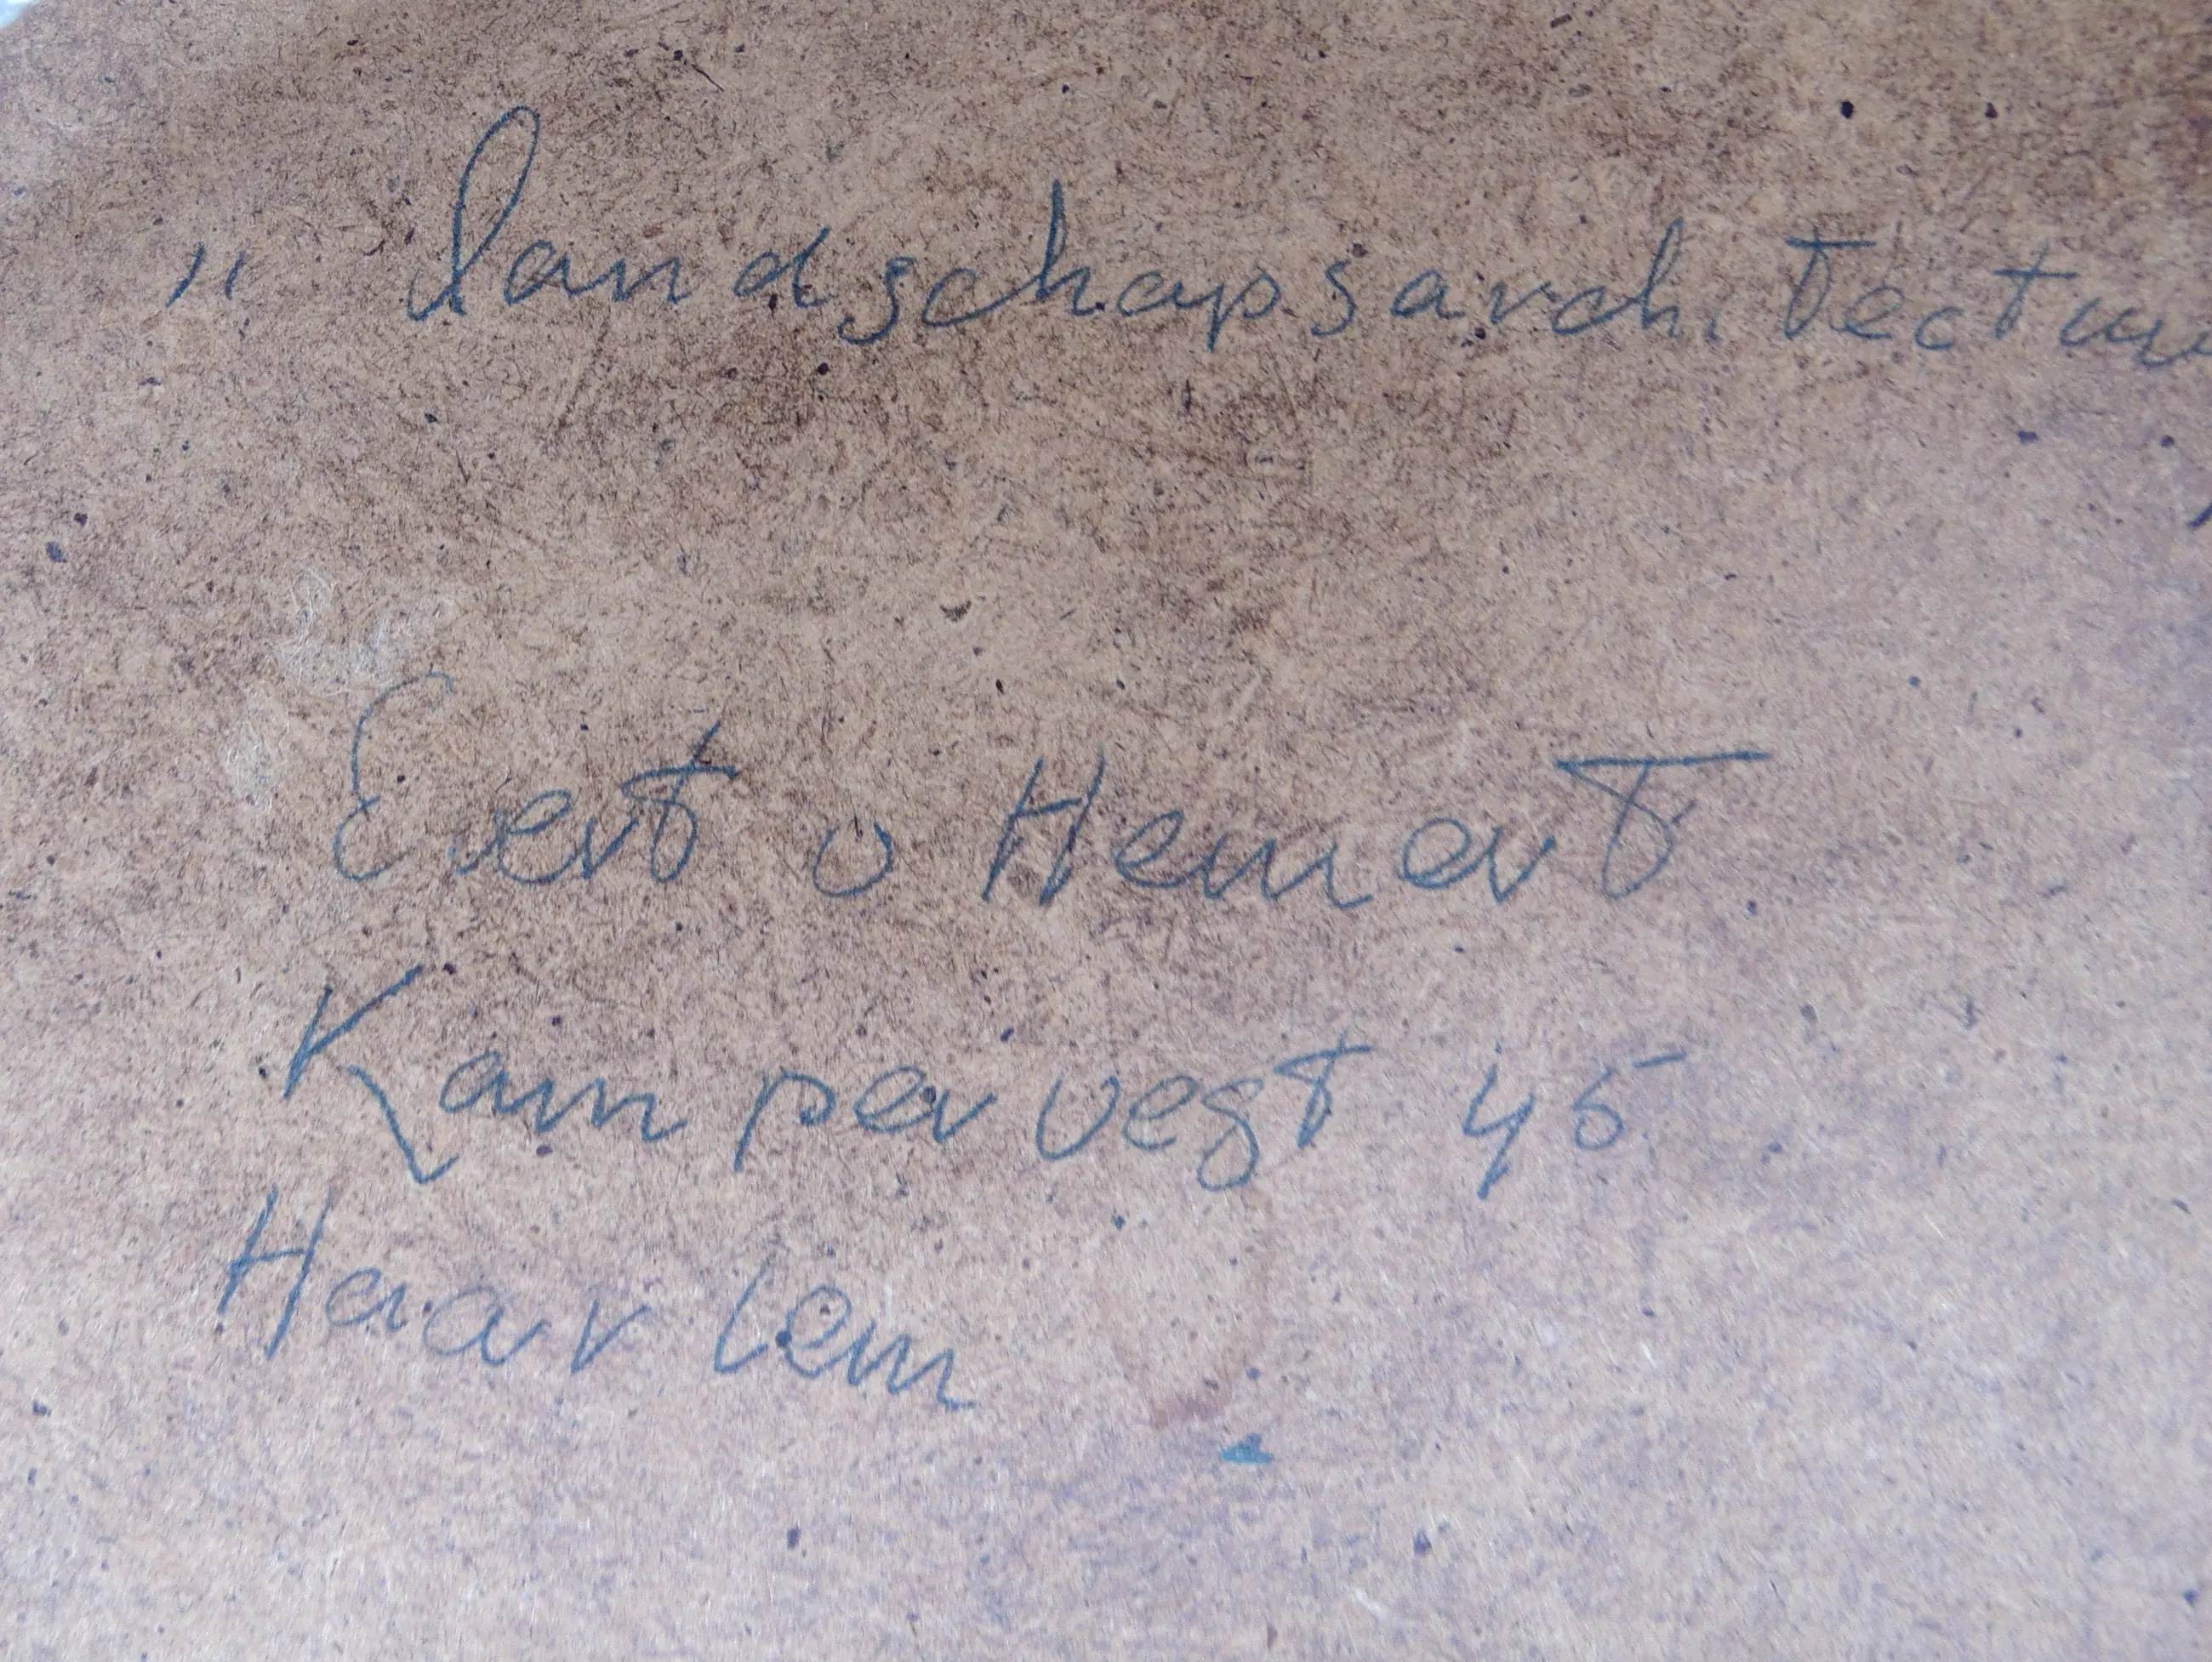 „ landschapsarchitectuu
Evert v Hemert
Kampervegt 45
Haarlem